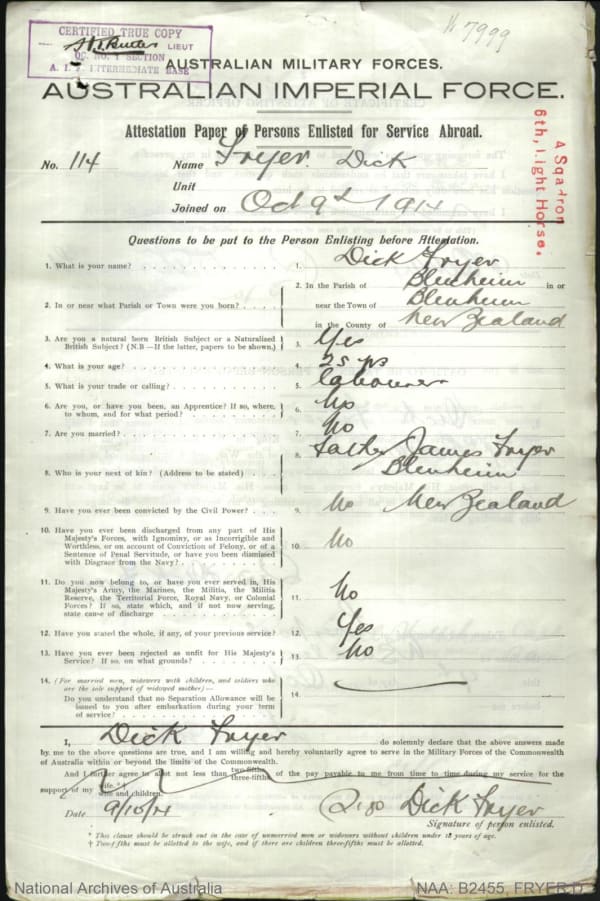 N 7999
CERTIFIED TRUE COPY
LIEUT
OC. NO. 1 SECTION
A. I. F. INTERMEDIATE BASE
AUSTRALIAN MILITARY FORCES.
AUSTRALIAN IMPERIAL FORCE.
Attestation Paper of Persons Enlisted for Service Abroad.
A Sqadron
6th, Light Horse.
No. 114 Name Fryer Dick
Unit
Joined on Oct 9th 1914
Questions to be put to the Person Enlisting before Attestation.
1. What is your name? 1. Dick Fryer
2. In or near what Parish or Town were you born? 2. In the Parish of Blenheim in or
near the Town of Blenheim
in the County of New Zealand
3. Are you a natural born British Subject or a Naturalized
British Subject? (N.B—If the latter, papers to be shown.) 3. Yes
4. What is your age? 4. 25 yrs
5. What is your trade or calling? 5. labourer
6. Are you, or have you been, an Apprentice? If so, where,
to whom, and for what period? 6. No
7. Are you married? 7. No
8. Who is your next of kin? (Address to be stated) 8. Father James Fryer
Blenheim
New Zealand
9. Have you ever been convicted by the Civil Power? 9. No
10. Have you ever been discharged from any part of His
Majesty's Forces, with Ignominy, or as Incorrigible and
Worthless, or on account of Conviction of Felony, or of a
Sentence of Penal Servitude, or have you been dismissed
with Disgrace from the Navy? 10. No
11. Do you now belong to, or have you ever served in, His
Majesty's Army, the Marines, the Militia, the Militia
Reserve, the Territorial Force, Royal Navy, or Colonial
Forces? If so, state which, and if not now serving,
state cause of discharge 11. No
12. Have you stated the whole, if any, of your previous service? 12. Yes
13. Have you ever been rejected as unfit for His Majesty's
Service? If so, on what grounds? 13. No
14. (For married men, widowers with children, and soldiers who
are the sole support of widowed mother)—
Do you understand that no Separation Allowance will be
issued to you after embarkation during your term
of service? 14.
I, Dick Fryer do solemnly declare that the above answers made
by me to the above questions are true, and I am willing and hereby voluntarily agree to serve in the Military Forces of the Commonwealth
of Australia within or beyond the limits of the Commonwealth.
And I further agree to allot not less than two-fifths
three-fifths of the pay payable to me from time to time during my service for the
support of my wife * †
wife and children.
Date 9/10/14 Dick Fryer
Signature of person enlisted.
* This clause should be struck out in the case of unmarried men or widowers without children under 18 years of age.
† Two-fifths must be allotted to the wife, and if there are children three-fifths must be allotted.
National Archives of Australia NAA: B2455, FRYER D